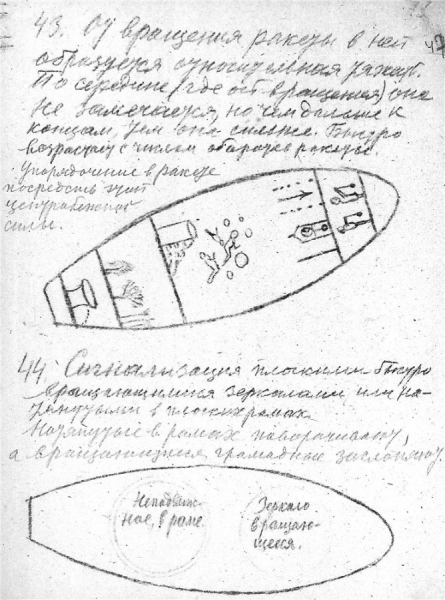 43. От вращения ракеты в ней
образуется относительная тяжесть.
По середине (где ось вращения) она
не замечается, но чем дальше к
концам, тем она сильнее. Быстро
возрастает с числом оборотов ракеты.
Упорядочение в ракете
посредством
центробежной
силы.
47
44 Сигнализация плоскими быстро
вращающимися зеркалами или на-
тянутыми в плоских рамах
Натянутые в рамах поворачивают,
а вращающиеся громадные
Неподвиж-
ное, в раме.
Зеркало
вращаю-
щееся.